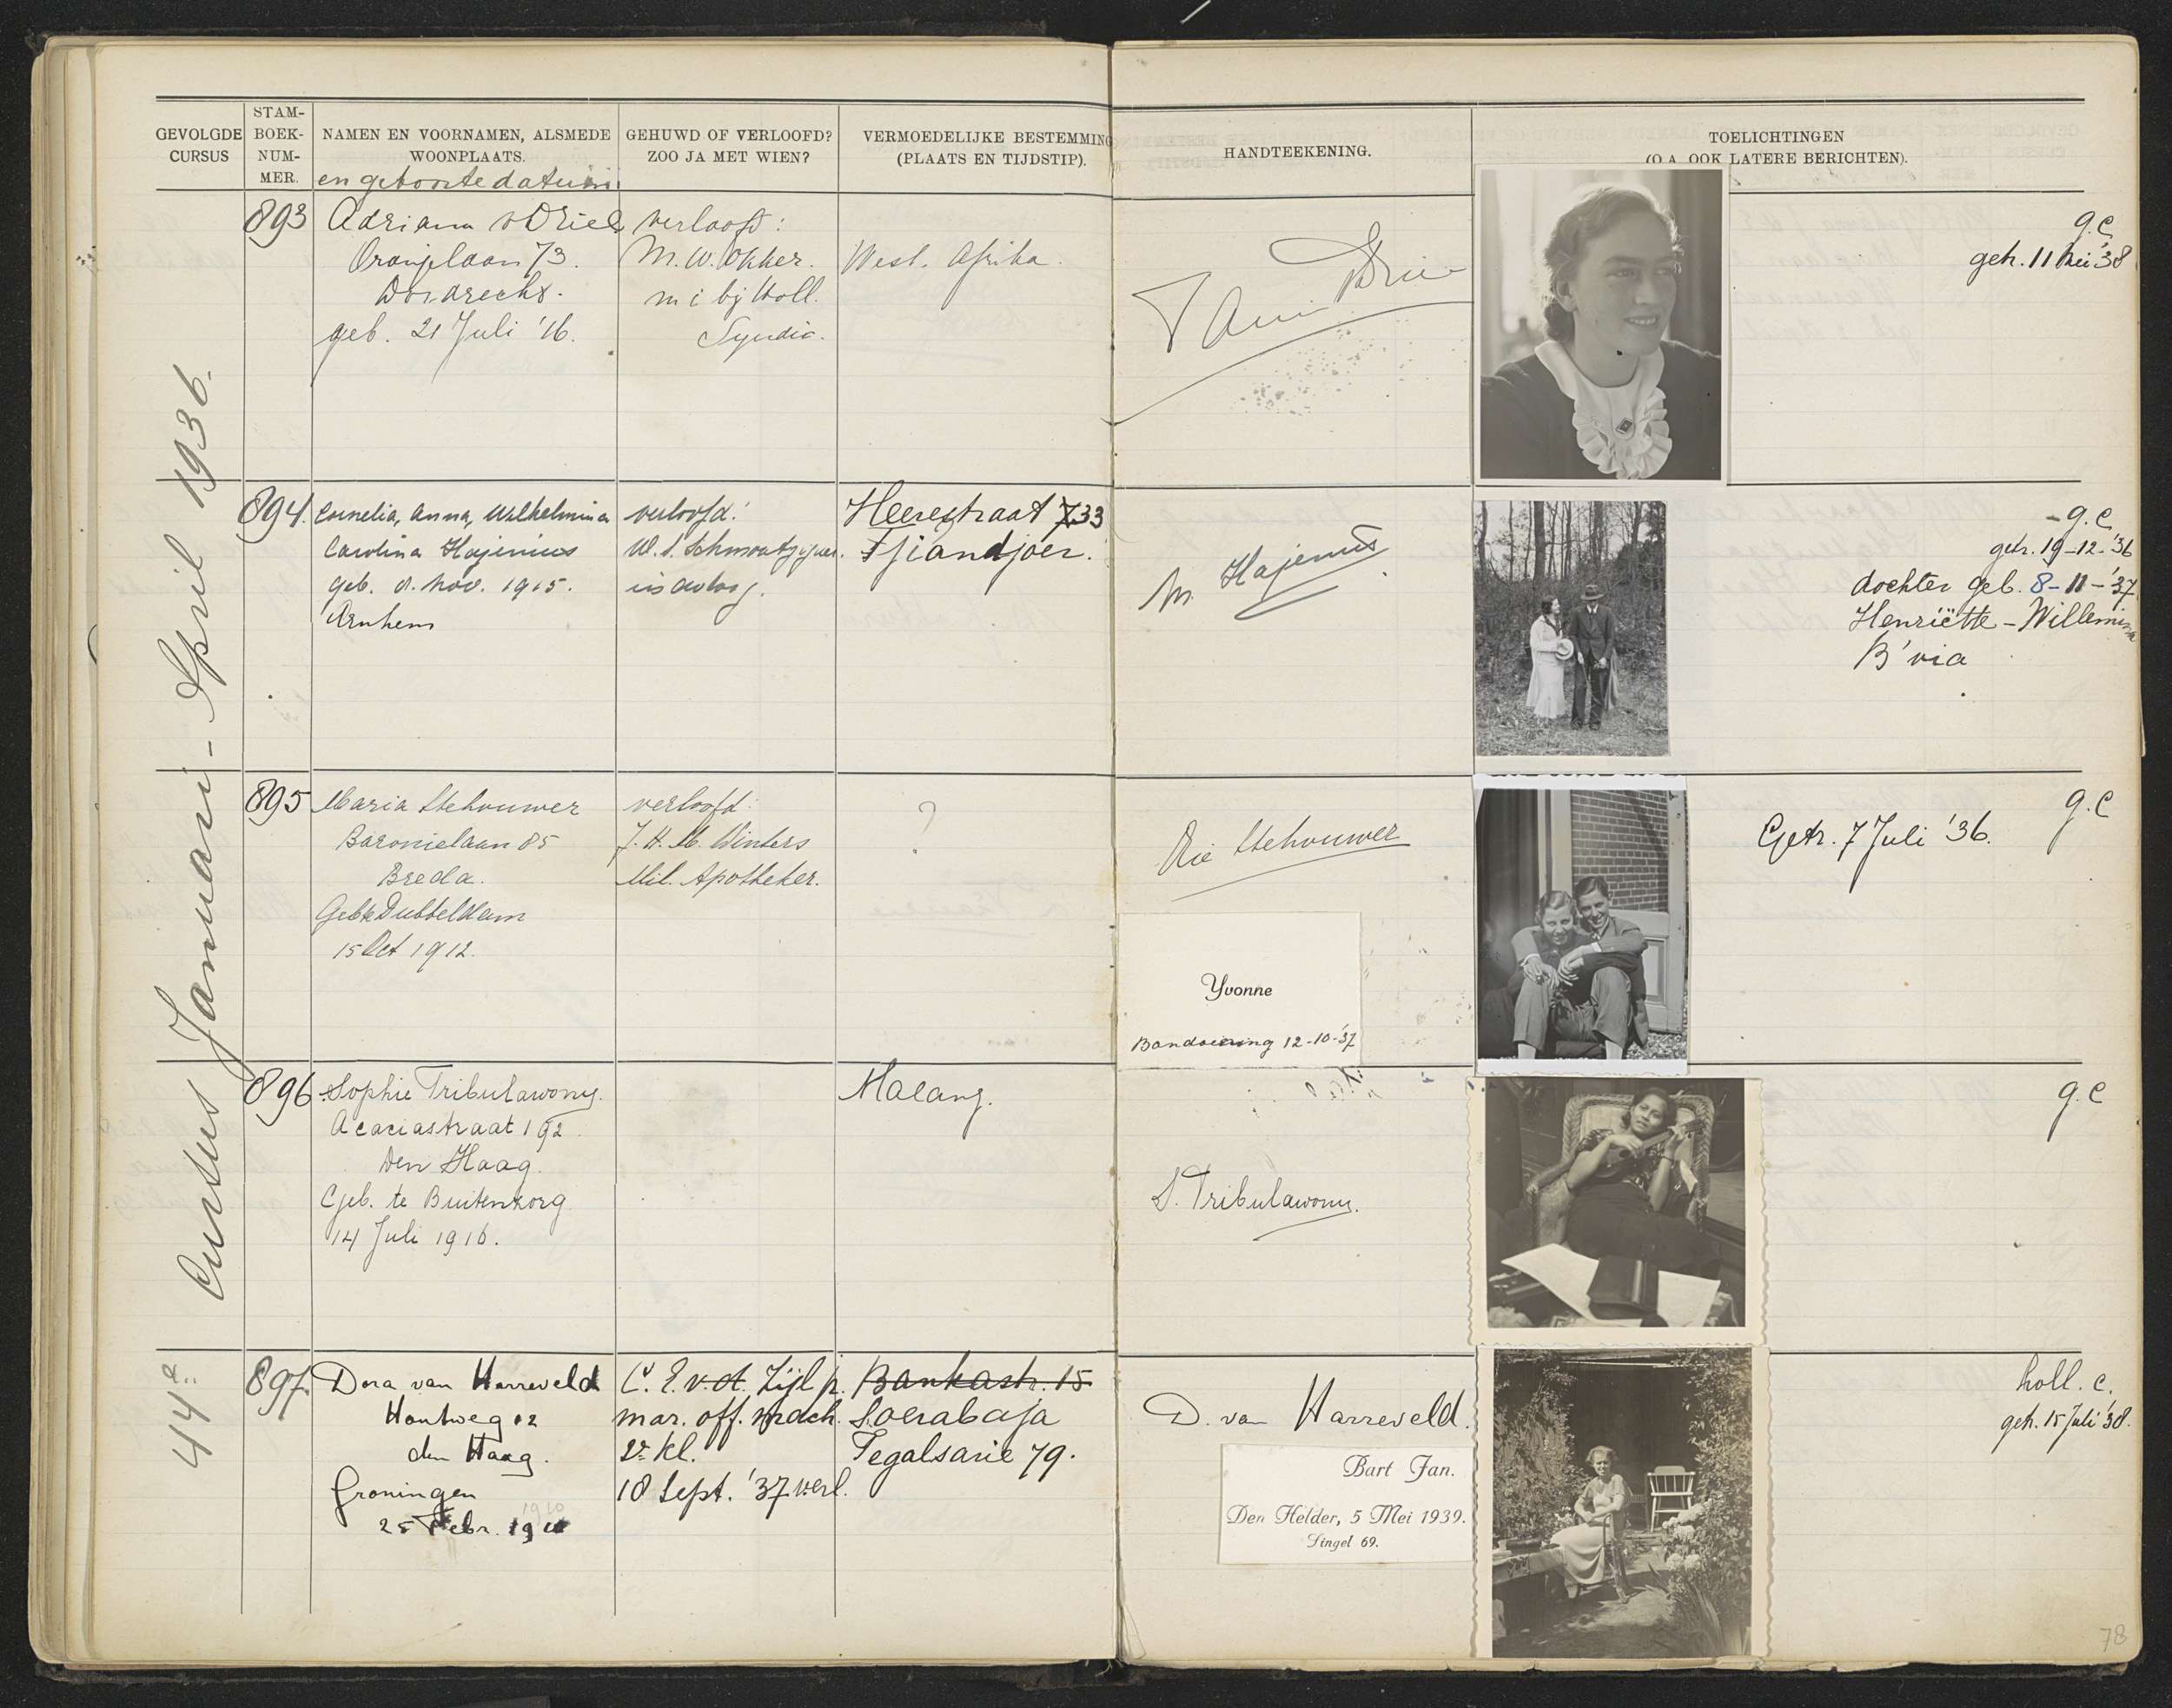 GEVOLGDE CURSUS
STAM-BOEK-NUM-MER.
NAMEN EN VOORNAMEN, ALSMEDE WOONPLAATS.
en geboortedatum
GEHUWD OF VERLOOFD? ZOO JA MET WIEN?
VERMOEDELIJKE BESTEMMING (PLAATS EN TIJDSTIP).
HANDTEEKENING.
TOELICHTINGEN
(O.A. OOK LATERE BERICHTEN).
44e Cursus Januari - April 1936.
893
Adriana v Driel
Oranjelaan 73.
Dordrecht.
geb. 21 Juli '16.
verloofd:
M.W. Okker.
m i bij Holl.
Syndic.
West. Afrika.
Driel
g.c.
getr. 11 Mei '38
894.
Cornelia, Anna, Wilhelmina
Carolina Hajenius
geb. 8. Nov. 1915.
Arnhem
verloofd:
W. S.
Heerestraat 733
Tjiandjoer.
M. Hajenius
g.c.
getr. 19-12-'36
dochter geb. 8-11-'37
Henriëtte-Willemina
B'via
895
Maria Stehouwer
Baronielaan 85
Breda.
Geb te Dubbeldam
15 Oct 1912.
verloofd:
J. H. M. Winters
Mil. Apotheker.
?
Rie Stehouwer
Yvonne
Bandoeng 12-10-'37
Getr. 7 Juli '36.
g.c
896
Sophie Tribulawony.
Acaciastraat 192.
Den Haag.
Geb. te Buitenzorg
14 Juli 1916.
Malang.
S. Tribulawony.
g.c
897.
Dora van Harreveld
Houtweg 12
den Haag.
Groningen
25 Febr. 1910
1910
C. E. v.d. Zijl p.
mar. off. mach.
2e kl.
18 Sept. '37 verl.
Bankastr. 15
Soerabaja
Tegalsarie 79.
D. van Harreveld.
Bart Jan.
Den Helder, 5 Mei 1939.
Singel 69.
holl. c.
getr. 15 Juli '38.
78